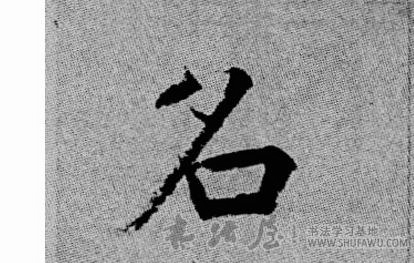 名
书法屋
书法学习基地
WWW.SHUFAWU.COM